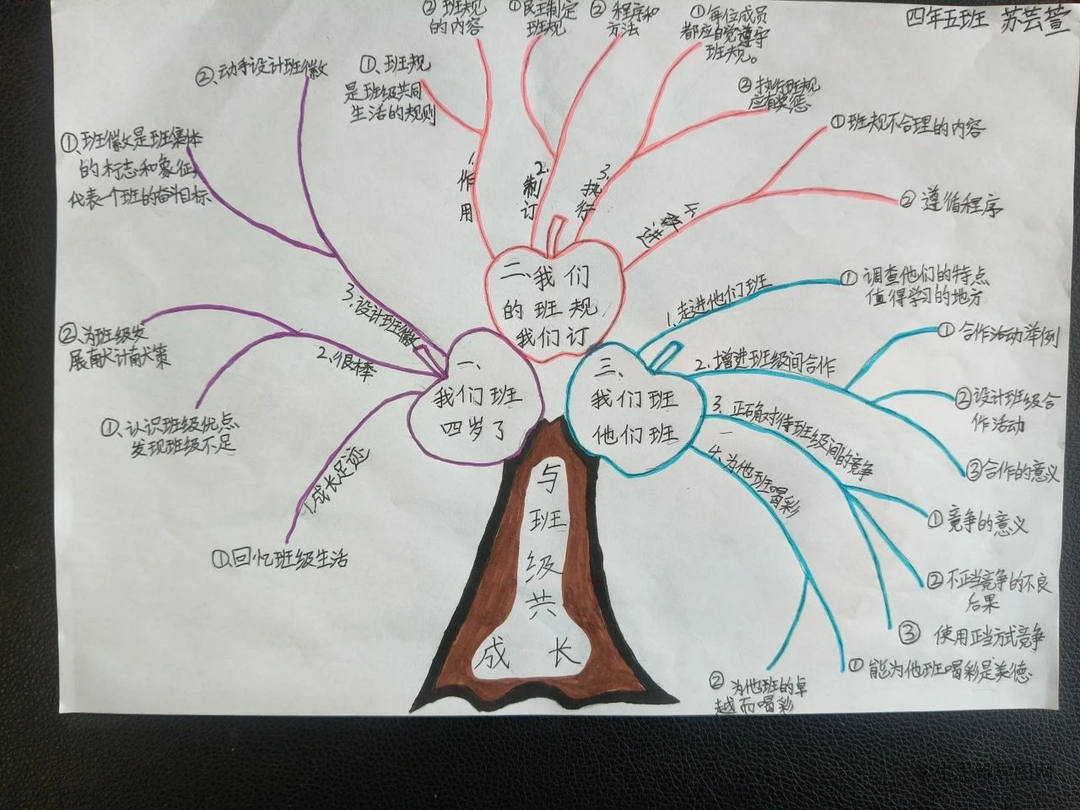 四年五班 苏芸萱
与
班
级
共
成 长
一、
我们班
四岁了
1.成长足迹
①、回忆班级生活
2、很棒
①、认识班级优点
发现班级不足
②、为班级发
展献计献策
3、设计班徽
①、班徽是班集体
的标志和象征
代表一个班的奋斗目标
②、动手设计班徽
二、我们
的班规
我们订
1、作用
①、班规
是班级共同
生活的规则
② 班规
的内容
2、制订
①民主制定
班规
② 程序和
方法
3、执行
①每位成员
都应自觉遵守
班规。
②执行班规
应有美德
4、改进
①班规不合理的内容
② 遵循程序
三、
我们班
他们班
1、走进他们班
① 调查他们的特点
值得学习的地方
2、增进班级间合作
①合作活动举例
②设计班级合
作活动
③合作的意义
3、正确对待班级间的竞争
①竞争的意义
②不正当竞争的不良
后果
③ 使用正当方式竞争
4、为他班喝彩
① 能为他班喝彩是美德
② 为他班的卓
越而喝彩